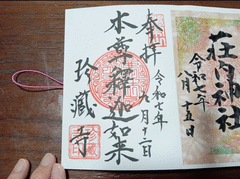 奉拝
令和七年九月十二日
本尊釋迦如来
珍蔵寺
荘内神社
令和七年
八月十五日